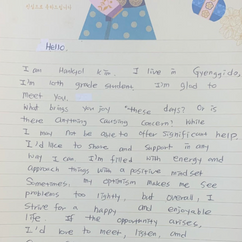 Hello,
I am Hankyol Kim. I live in Gyeonggido,
I'm 10th grade students. I'm glad to
meet you.
What brings you joy these days? Or is
there anything causing concern? While
I may not be able to offer significant help,
I'd like to share and support in any
way I can. I'm filled with energy and
approach things with a positive mindset
Sometimes, my optimism makes me see
problems too lightly, but overall, I
strive for a happy and enjoyable
life. If the opportunity arises,
I'd love to meet, listen, and